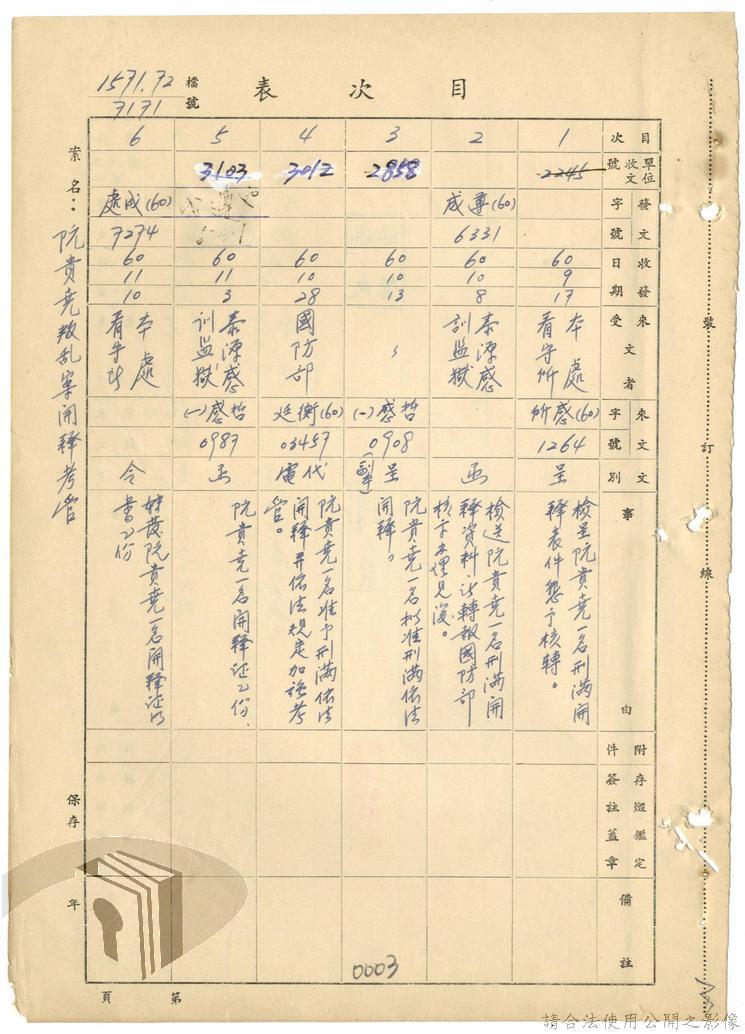 目次表
檔號
1571.72
7171
案名：阮貴堯叛乱案開釋考管
目次
單位收文號
發文字號
收發日期
來受文者
來文字號
文別
事由
附件
存毀鑑定簽註蓋章
備註
1
2245
60
9
17
本處
看守所
(60)感所
1264
呈
檢呈阮貴堯一名刑滿開
釋表件懇予核轉。
2
(60)
6331
60
10
8
泰源感
訓監獄
函
檢送阮貴堯一名刑滿開
釋資料請轉報國防部
3
2858
60
10
13
〃
哲感(一)
0908
呈
阮貴堯一名擬准刑滿依法
開釋。
4
3012
60
10
28
國防部
(60)
03457
代電
阮貴堯一名准予刑滿依法
開釋并依法規定加強考
管。
5
3103
60
11
3
泰源感
訓監獄
哲感(一)
0987
函
阮貴堯一名開釋证乙份、
6
(60)成處
7274
60
11
10
本處
看守所
令
阮貴堯一名開釋证明
書乙份
裝訂線
保存 年
第 頁
0003
請合法使用公開之影像